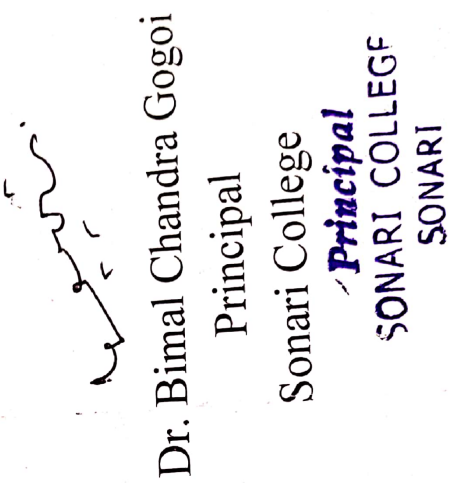 Dr. Bimal Chandra Gogoi
Principal
Sonari College
Principal
SONARI COLLEGE
SONARI